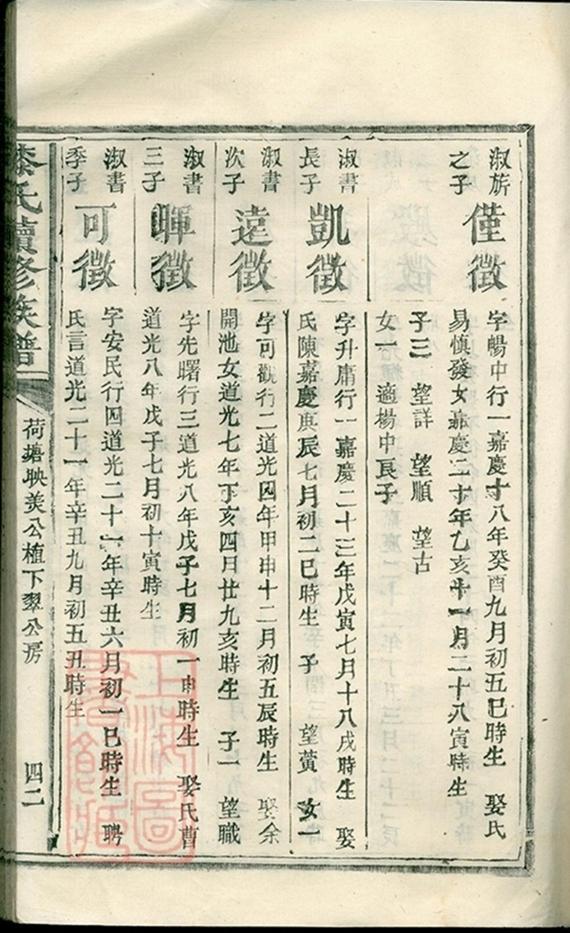 淑旂之子
僅徵
字暢中行一嘉慶十八年癸酉九月初五巳時生　娶氏
易慎發女嘉慶二十年乙亥十一月二十八寅時生
子三　望詳　望順　望古
女一　適楊中良子
淑書長子
凱徵
字升庸行一嘉慶二十三年戊寅七月十八戌時生　娶
氏陳嘉慶庚辰七月初二巳時生　子　望蕢　女一
淑書次子
遠徵
字可觀行二道光四年甲申十二月初五辰時生　娶余
開池女道光七年丁亥四日廿九亥時生　子一　望職
淑書三子
暉徵
字先曙行三道光八年戊子七月初一申時生　娶氏曹
道光八年戊子七月初十寅時生
淑書季子
可徵
字安民行四道光二十一年辛丑六月初一巳時生　聘
氏言道光二十一年辛丑九月初五丑時生
漆氏續修族譜
荷塘映美公植下翠公房
四二
上海圖書館藏